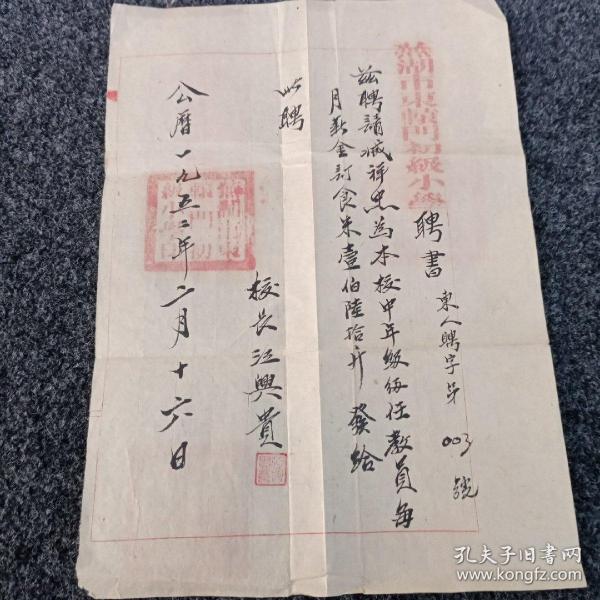 蕪湖市東轅門初級小學
聘書 東人聘字第003號
茲聘請臧祥忠為本校中年級級任教員每
月薪金訂食米壹伯陸拾升 發給
此聘
校長江興貴
公曆一九五二年二月十六日
孔夫子旧书网
www.kongfz.com